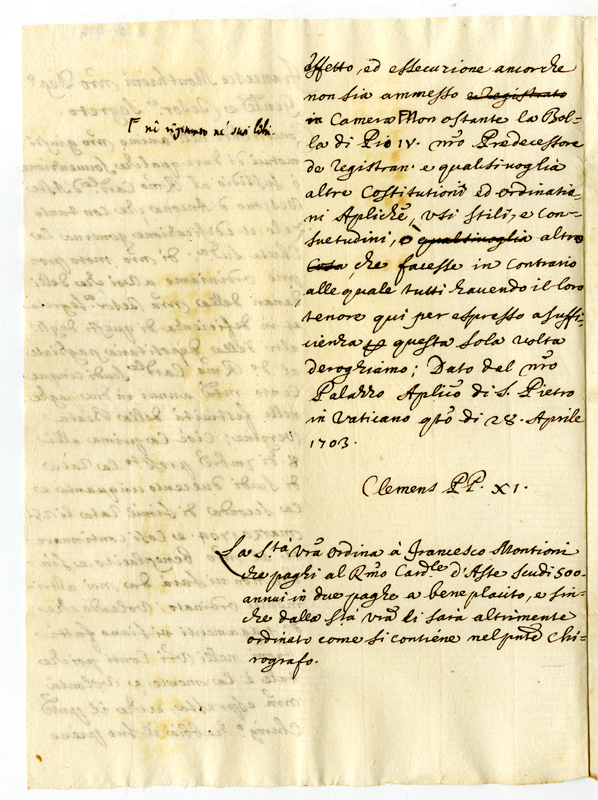 effetto, ed essecuzione ancorche
non sia ammesso e Registrato
in Camera Γ Non ostante la Bol-
la di Pio IV. nr̃o Predecessore
de Registran. e qualsivoglia
altre Costitutioni ed ordinatio-
ni Apliche, usi stili, e Con-
suetudini, ò qualsivoglia altro
Cosa che facesse in contrario
alle quale tutti havendo il loro
tenore qui per espresso a suffi-
cienza p questa sola volta
deroghiamo; Dato dal nr̃o
Palazzo Aplico di S. Pietro
in Vaticano qto di 28. Aprile
1703.
Γ nè ne' suoi libri.
Clemens PP. XI.
La Stà vrã ordina à Francesco Montioni
che paghi al Rmo Card.le d'Aste scudi 500-
annui in due paghe a beneplacito, e sin-
che dalla Stà vrã li sarà altrimente
ordinato come si contiene nel pñte Chi-
rografo.